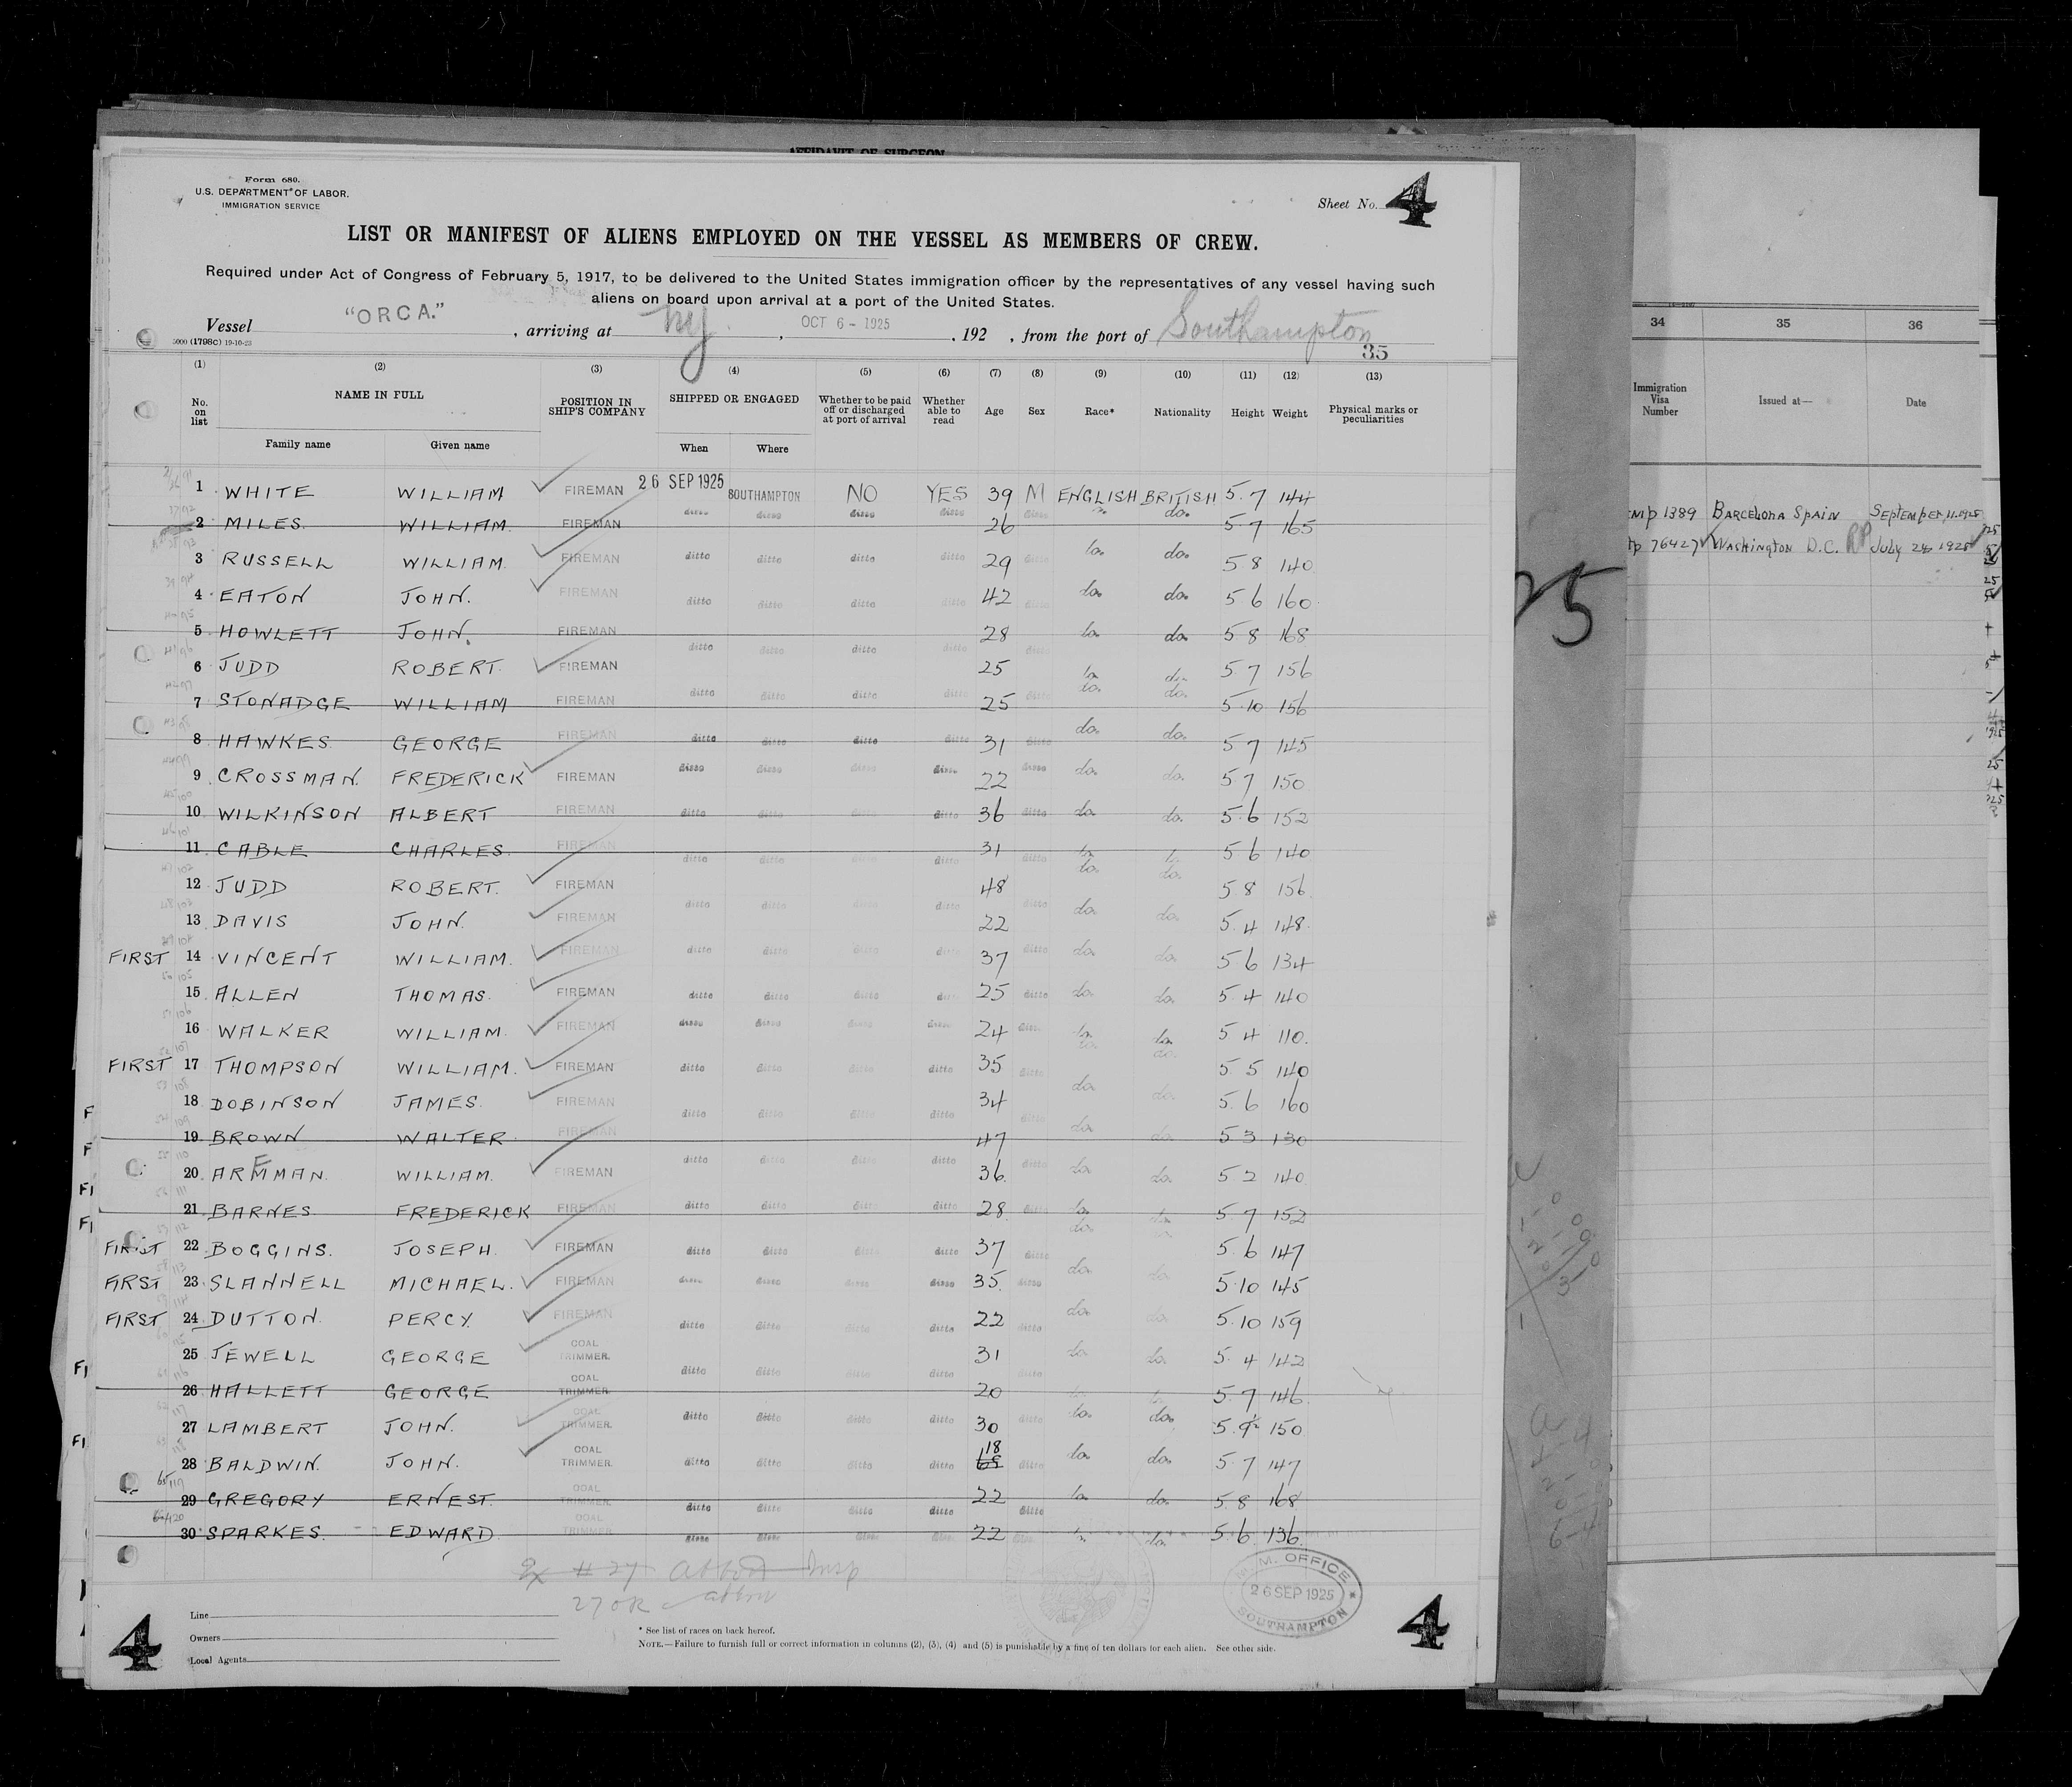 AFFIDAVIT OF SURGEON
Form 680.
U.S. DEPARTMENT OF LABOR.
IMMIGRATION SERVICE
Sheet No. 4
LIST OR MANIFEST OF ALIENS EMPLOYED ON THE VESSEL AS MEMBERS OF CREW.
Required under Act of Congress of February 5, 1917, to be delivered to the United States immigration officer by the representatives of any vessel having such
aliens on board upon arrival at a port of the United States.
Vessel "ORCA." , arriving at NY , OCT 6 - 1925 , 192 , from the port of Southampton
5000 (1798c) 19-10-23
35
(1) (2) (3) (4) (5) (6) (7) (8) (9) (10) (11) (12) (13)
No. on list NAME IN FULL Family name Given name POSITION IN SHIP'S COMPANY SHIPPED OR ENGAGED When Where Whether to be paid off or discharged at port of arrival Whether able to read Age Sex Race* Nationality Height Weight Physical marks or peculiarities
1 WHITE WILLIAM FIREMAN 26 SEP 1925 SOUTHAMPTON NO YES 39 M ENGLISH BRITISH 5.7 144
2 MILES. WILLIAM. FIREMAN ditto ditto ditto ditto ditto do. 26 5.7 165
3 RUSSELL WILLIAM. FIREMAN ditto ditto ditto ditto 29 do. do. 5.8 140
4 EATON JOHN. FIREMAN ditto ditto ditto ditto 42 do. do. 5.6 160
5 HOWLETT JOHN. FIREMAN 28 do. do. 5.8 168
6 JUDD ROBERT. FIREMAN ditto ditto ditto ditto 25 do. do. 5.7 156
7 STONADGE WILLIAM FIREMAN ditto ditto ditto ditto 25 do. do. 5.10 156
8 HAWKES GEORGE FIREMAN ditto ditto ditto ditto 31 ditto do. do. 5.7 145
9 CROSSMAN. FREDERICK FIREMAN ditto ditto ditto ditto 22 ditto do. do. 5.7 150
10 WILKINSON ALBERT FIREMAN ditto ditto ditto ditto 36 ditto do. do. 5.6 152
11 CABLE CHARLES. FIREMAN ditto ditto ditto ditto 31 ditto do. do. 5.6 140
12 JUDD ROBERT. FIREMAN 48 do. do. 5.8 156
13 DAVIS JOHN. FIREMAN ditto ditto ditto ditto 22 ditto do. do. 5.4 148
FIRST 14 VINCENT WILLIAM. FIREMAN ditto ditto ditto ditto 37 ditto do. do. 5.6 134
15 ALLEN THOMAS. FIREMAN ditto ditto ditto ditto 25 ditto do. do. 5.4 140
16 WALKER WILLIAM. FIREMAN ditto ditto ditto ditto 24 ditto do. do. 5.4 110.
FIRST 17 THOMPSON WILLIAM. FIREMAN ditto ditto ditto ditto 35 ditto do. do. 5.5 140
18 DOBINSON JAMES. FIREMAN ditto ditto ditto ditto 34 ditto do. do. 5.6 160
19 BROWN WALTER FIREMAN 47 do. do. 5.3 130
20 ARMMAN. WILLIAM. FIREMAN ditto ditto ditto ditto 36. ditto do. do. 5.2 140
21 BARNES FREDERICK FIREMAN ditto ditto ditto ditto 28 ditto do. do. 5.7 152
FIRST 22 BOGGINS. JOSEPH. FIREMAN ditto ditto ditto ditto 37 ditto do. do. 5.6 147
FIRST 23 SLANNELL MICHAEL. FIREMAN ditto ditto ditto ditto 35. ditto do. do. 5.10 145
FIRST 24 DUTTON. PERCY. FIREMAN ditto ditto ditto ditto 22 ditto do. do. 5.10 159
25 JEWELL GEORGE COAL TRIMMER. 31 do. do. 5.4 142
26 HALLETT GEORGE COAL TRIMMER. ditto ditto ditto ditto 20 ditto 5.7 146
27 LAMBERT JOHN. COAL TRIMMER. ditto ditto ditto ditto 30 ditto do. do. 5.9½ 150
28 BALDWIN. JOHN. COAL TRIMMER. ditto ditto ditto ditto 18 ditto do. do. 5.7 147
29 GREGORY ERNEST. COAL TRIMMER. ditto ditto ditto ditto 22 ditto do. do. 5.8 168
30 SPARKES. EDWARD. COAL TRIMMER. ditto ditto ditto ditto 22 ditto do. do. 5.6 136
Ex #27 Abbott Insp
27 OK Abbott
M.M. OFFICE
26 SEP 1925
SOUTHAMPTON
Line
Owners
Local Agents
* See list of races on back hereof.
NOTE.—Failure to furnish full or correct information in columns (2), (3), (4) and (5) is punishable by a fine of ten dollars for each alien. See other side.
4
4
25
34 35 36
Immigration Visa Number Issued at— Date
1389 BARCELONA SPAIN SEPTEMBER 11. 1925
76427 WASHINGTON D.C. RP JULY 24 1925